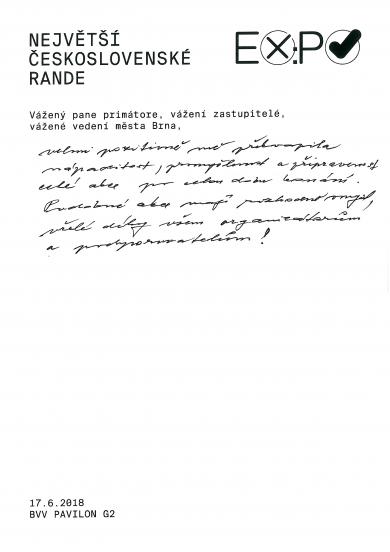 NEJVĚTŠÍ
ČESKOSLOVENSKÉ
RANDE
EX:PO
Vážený pane primátore, vážení zastupitelé,
vážené vedení města Brna,
velmi pozitivně mě překvapila
nápaditost, promyšlenost a připravenost
celé akce po celou dobu konání.
Podobné akce mají rozhodně smysl,
vřelé díky všem organizátorům
a podporovatelům!
17.6.2018
BVV PAVILON G2